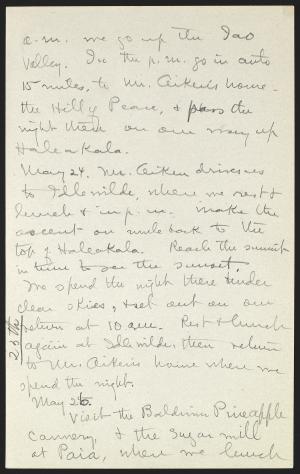 a.m. we go up the Iao
Valley. In the p.m. go in auto
15 miles, to Mr. Aiken's home -
the Hilly Peace, & pass the
night there on our way up
Haleakala.
May 24. Mr. Aiken drives us
to Idlewilde, where we rest &
lunch & in p.m. make the
ascent on mule back to the
top of Haleakala. Reach the summit
in time to see the sunset.
We spend the night there under
clear skies, & set out on our
return at 10 a.m. Rest & lunch
again at Idlewilde, then return
to Mr. Aiken's home where we
spend the night.
25th
May 26.
Visit the Baldwin Pineapple
cannery, & the sugar mill
at Paia, where we lunch